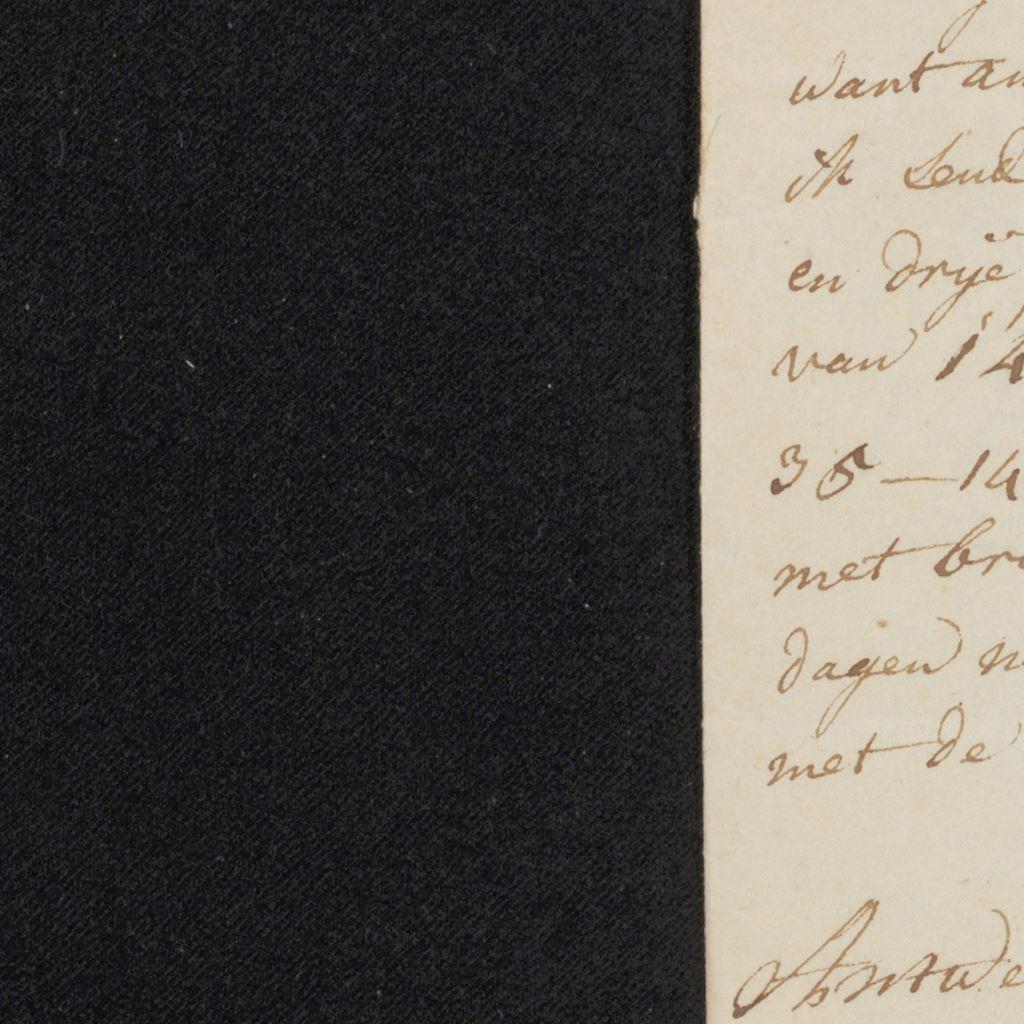 want an
ik send
en drÿe
van 14
36 — 14
met bro
dagen n
met de
Antwe